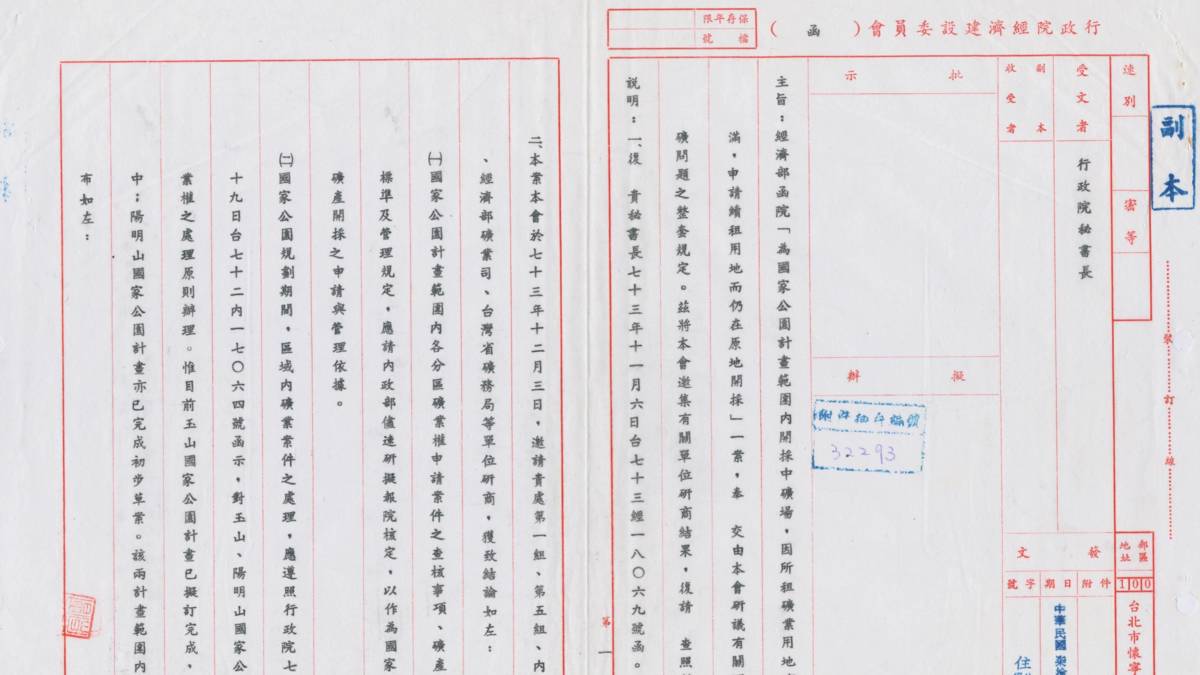 行政院經濟建設委員會（函）
保存年限
檔號
副本
速別
密等
受文者
行政院秘書長
副本
收受者
批示
擬辦
附件抽存編號
32293
裝訂線
郵區
地址
100
台北市懷寧
發文
附件
日期
字號
中華民國
主旨：經濟部函院「為國家公園計畫範圍內開採中礦場，因所租礦業用地
滿，申請續租用地而仍在原地開採」一案，奉　交由本會研議有關
礦問題之整套規定。茲將本會邀集有關單位研商結果，復請　查照
說明：一、復　貴秘書長七十三年十一月六日台七十三經一八〇六九號函。
第一
二、本案本會於七十三年十二月三日，邀請貴處第一組、第五組、內
、經濟部礦業司、台灣省礦務局等單位研商，獲致結論如左：
㈠國家公園計畫範圍內各分區礦業權申請案件之查核事項、礦產
標準及管理規定，應請內政部儘速研擬報院核定，以作為國家
礦產開採之申請與管理依據。
㈡國家公園規劃期間，區域內礦業案件之處理，應遵照行政院七
十九日台七十二內一七〇六四號函示，對玉山、陽明山國家公
業權之處理原則辦理。惟目前玉山國家公園計畫已擬訂完成，
中；陽明山國家公園計畫亦已完成初步草案。該兩計畫範圍內
布如左：